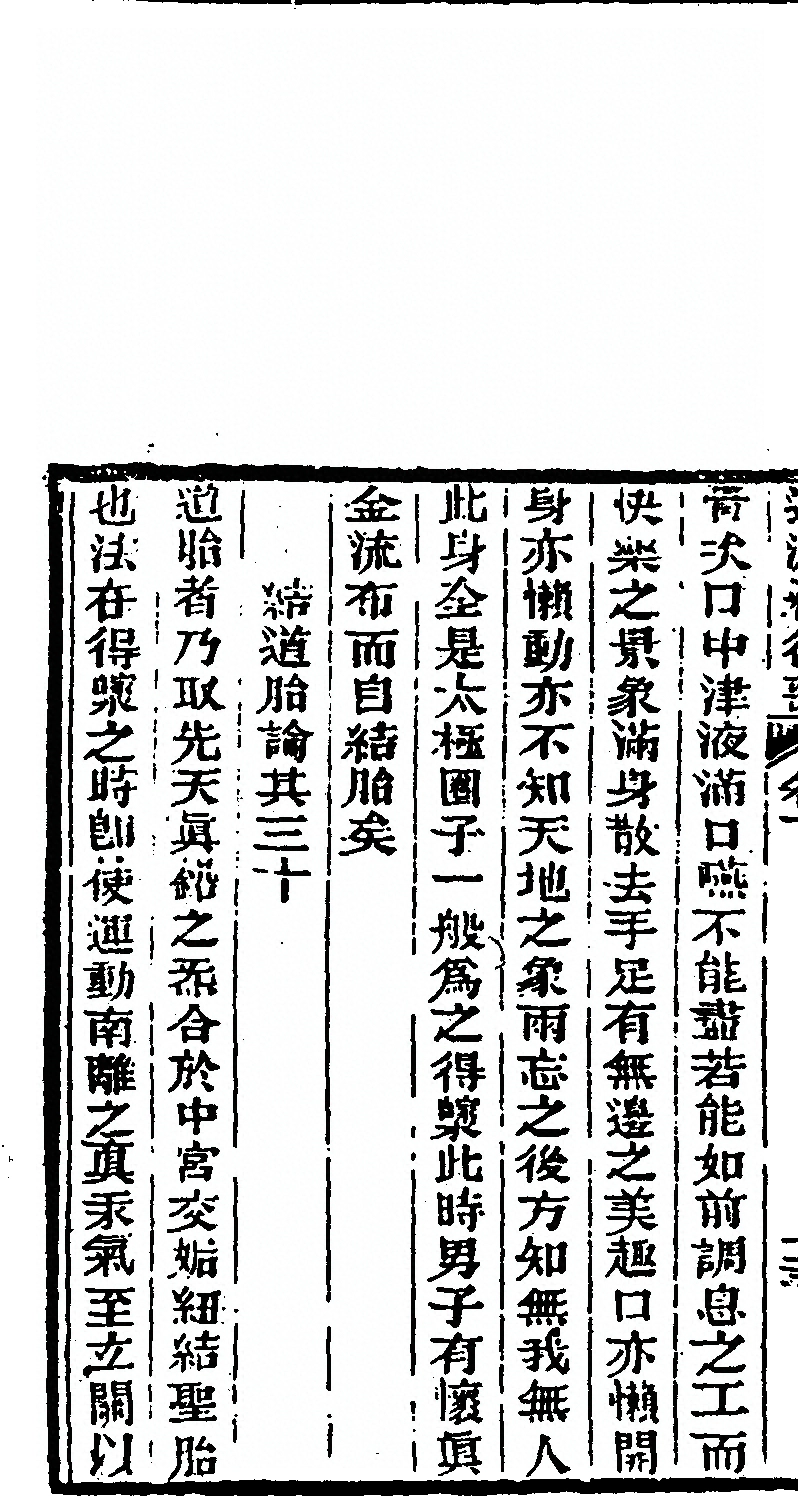 次口中津液滿口嚥不能盡若能如前調息之工而
快樂之景象滿身散去手足有無邊之美趣口亦懶開
身亦懶動亦不知天地之象雨忘之後方知無我無人
此身全是太極圈子一般爲之得此時男子有懷眞
金流布而自結胎矣
結道胎論其三十
道胎者乃取先天眞鉛之炁合於中宮交姤紐結聖胎
也法在得之時卽使運動南離之眞汞氣至玄關以